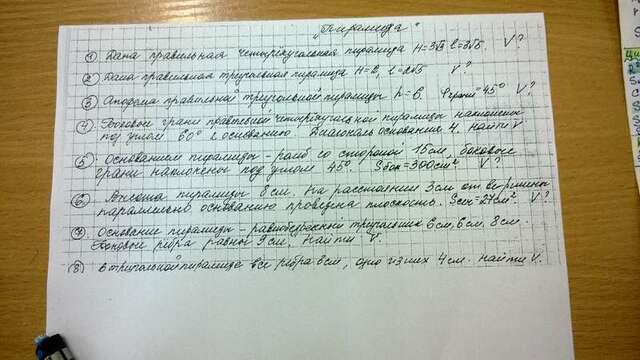 "Пирамида"
① Дана правильная четырёхугольная пирамида H=3√3 l=3√5. V?
② Дана правильная треугольная пирамида H=2, l=2√5 V?
③ Апофема правильной треугольной пирамиды h=6. грани=45° V?
④ Боковые грани правильной четырёхугольной пирамиды наклонены
под углом 60° к основанию. Диагональ основания 4. Найти V
⑤ Основанием пирамиды - ромб со стороной 15 см. Боковые
грани наклонены под углом 45°. Sбок=300см² V?
⑥ пирамиды 8 см. На расстоянии 3см от вершины
параллельно основанию проведена плоскость. Sсеч=27см² V?
⑦ Основание пирамиды - равнобедренный треугольник 6см, 6см, 8см.
Боковые рёбра равны 9см. Найти V.
⑧ В треугольной пирамиде все рёбра см, одно из них 4см. Найти V.